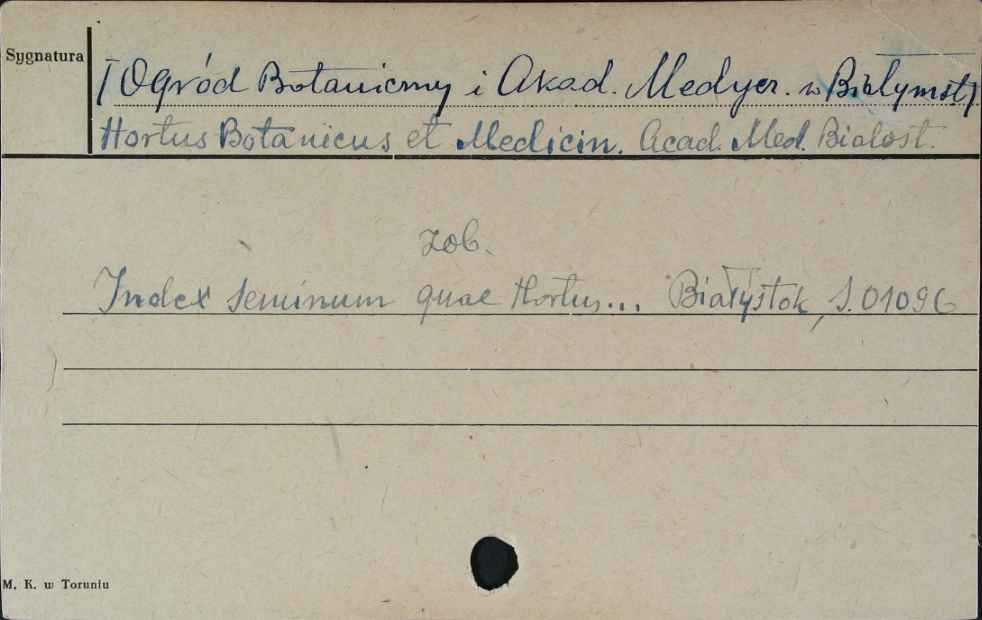 Sygnatura
[Ogród Botaniczny i Akad. Medycz. w Białymst]
Hortus Botanicus et Medicin. Acad. Med. Bialost.
zob.
Index seminum quae Hortus... Białystok, S.01096
M. K. w Toruniu